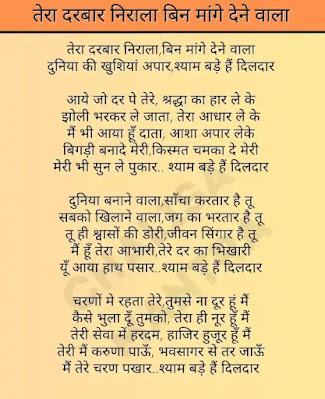 तेरा दरबार निराला बिन मांगे देने वाला
तेरा दरबार निराला,बिन मांगे देने वाला
दुनिया की खुशियां अपार,श्याम बड़े हैं दिलदार
आये जो दर पे तेरे, श्रद्धा का हार ले के
झोली भरकर ले जाता, तेरा आधार ले के
मैं भी आया हूँ दाता, आशा अपार लेके
बिगड़ी बनादे मेरी,किस्मत चमका दे मेरी
मेरी भी सुन ले पुकार.. श्याम बड़े हैं दिलदार
दुनिया बनाने वाला,साँचा करतार है तू
सबको खिलाने वाला,जग का भरतार है तू
तू ही श्वासों की डोरी,जीवन सिंगार है तू
मैं हूँ तेरा आभारी,तेरे दर का भिखारी
यूँ आया हाथ पसार..श्याम बड़े हैं दिलदार
चरणों मे रहता तेरे,तुमसे ना दूर हूं मैं
कैसे भुला दूँ तुमको, तेरा ही नूर हूँ मैं
तेरी सेवा में हरदम, हाजिर हुजूर हूँ मैं
तेरी मैं करुणा पाऊँ, भवसागर से तर जाऊँ
मैं तेरे चरण पखार..श्याम बड़े हैं दिलदार